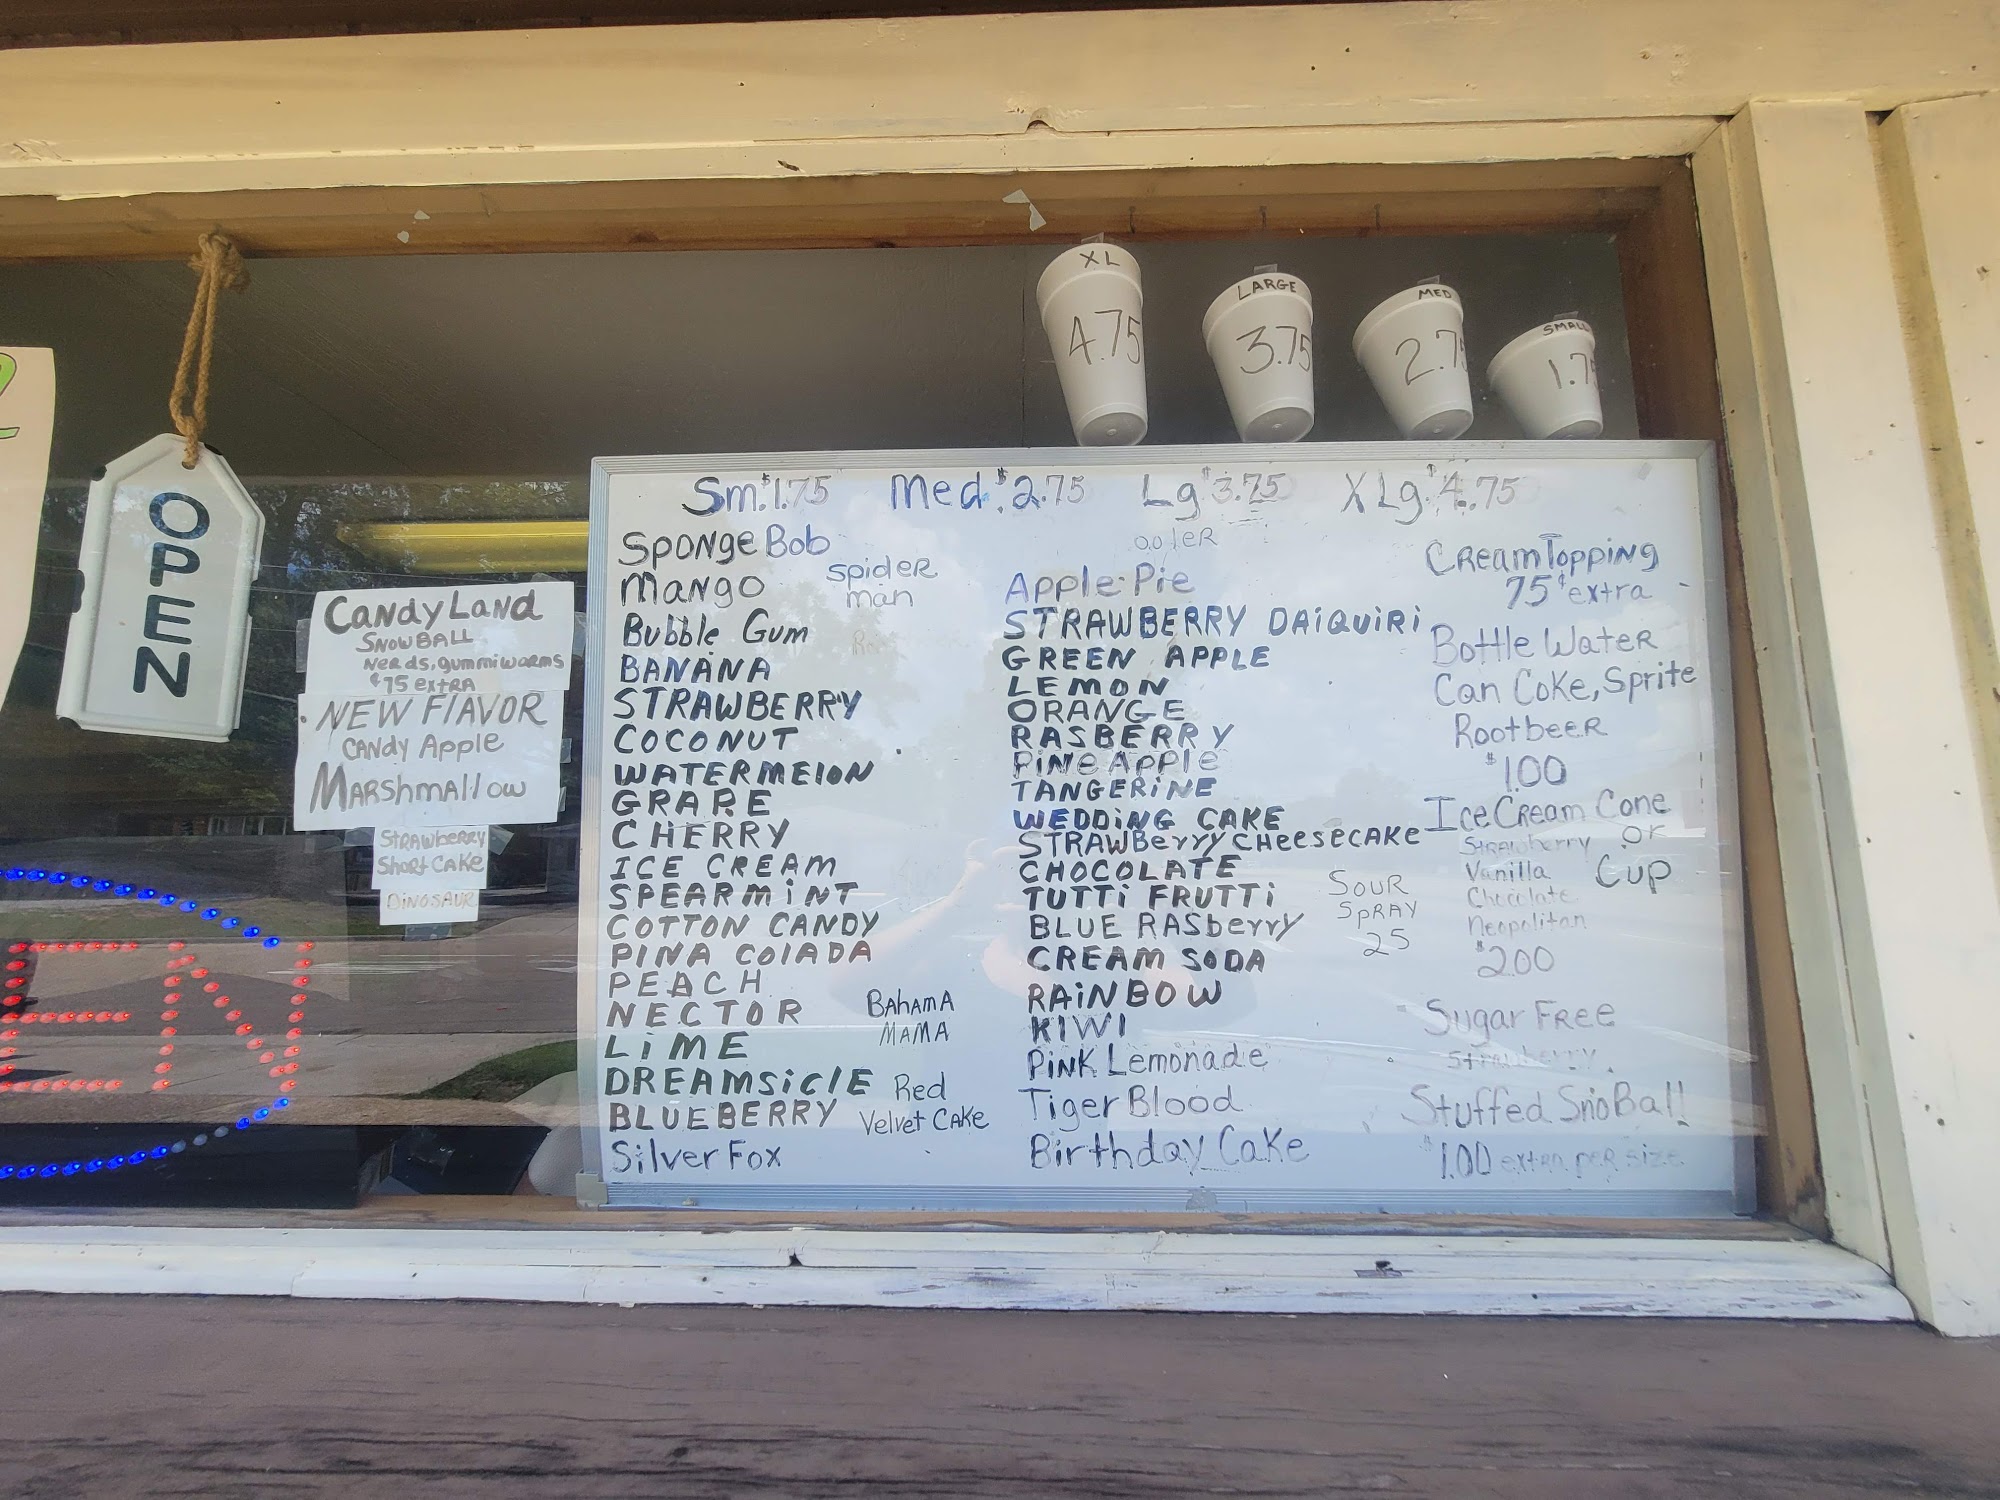 XL
4.75
LARGE
3.75
MED
2.7
SMALL
1.7
OPEN
CANDYLAND
SNOWBALL
NERds, gummiworms
75 extra
NEW FlAVOR
CANDY Apple
MARshmAllow
STRAWbeRRY
ShortCAKE
DINOSAUR
EN
Sm. $1.75 Med. $2.75 Lg $3.75 XLg. $4.75
SPONgeBob
MANgo
Bubble Gum
BANANA
STRAWBERRY
COCONUT
WATERMElON
GRAPE
CHERRY
ICE CREAM
SPEARMiNT
COTTON CANDY
PINA COlADA
PEACH
NECTOR
LiME
DREAMSiClE
BLUEBERRY
SilverFox
SpideR
maN
BAhAmA
MAMA
Red
Velvet CAKe
Apple Pie
STRAWBERRY DAiQUiRi
GREEN APPLE
LEMON
ORANGE
RASBERRY
PiNe APPle
TANGERiNE
WEDDiNG CAKE
STRAWBerry CHeeseCAKe
CHOCOLATE
TUTTi FRUTTi
BLUE RASberry
CREAM SODA
RAiNBOW
KIWI
PiNK Lemonade
TigerBlood
Birthday Cake
SOUR
SPRAY
25
CReamTopping
75¢ extra
Bottle WateR
Can Coke, Sprite
RootbeeR
$1.00
IceCream Cone
or
Cup
Strawberry
Vanilla
Chocolate
Neopolitan
$2.00
Sugar FRee
Strawberry
Stuffed SnoBall
$1.00 extra per size